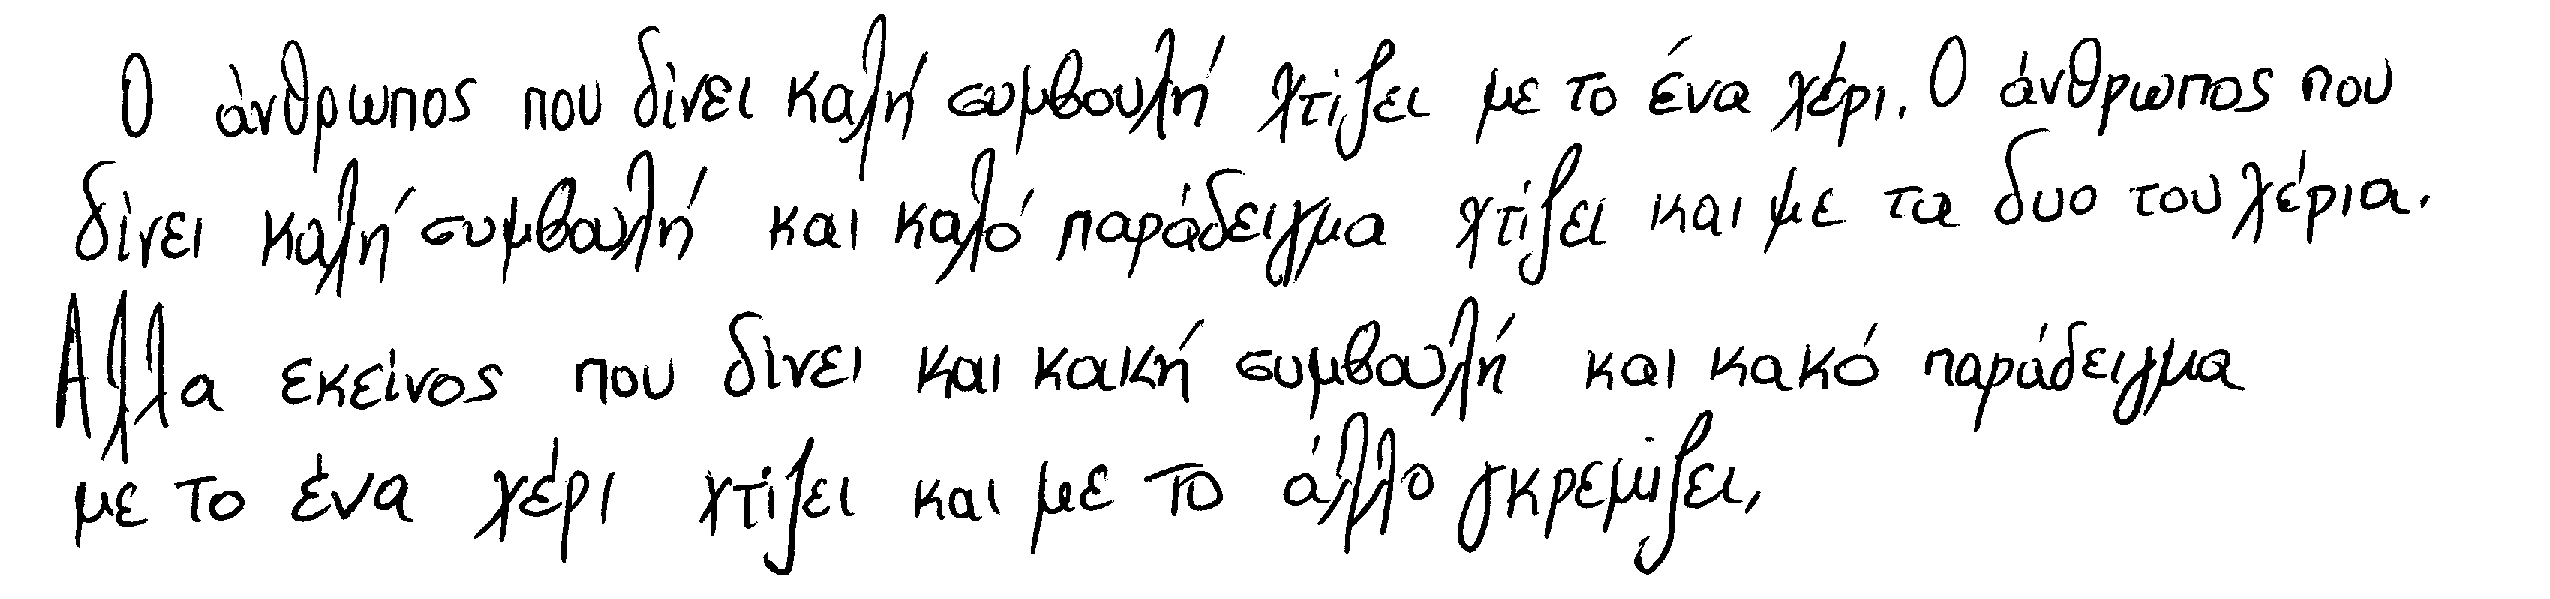 Ο άνθρωπος που δίνει καλή συμβουλή χτίζει με το ένα χέρι. Ο άνθρωπος που
δίνει καλή συμβουλή και καλό παράδειγμα χτίζει και με τα δυο του χέρια.
Αλλα εκείνος που δίνει και κακή συμβουλή και κακό παράδειγμα
με το ένα χέρι χτίζει και με το άλλο γκρεμίζει,